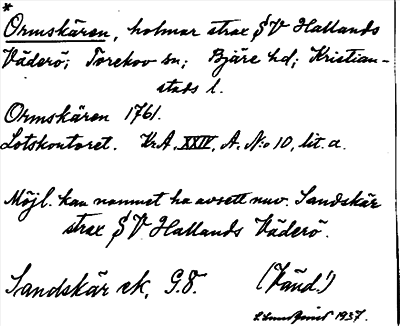 *
Ormskären, holmar strax SV Hallands
Väderö; Torekov sn; Bjäre hd; Kristian-
stads l.
Ormskären 1761.
Lotskontoret. Kr.A. XXIV, A. N:o 10, lit. a.
Möjl. kan namnet ha avsett nuv. Sandskär
strax SV Hallands Väderö.
Sandskär ek, G.8. (Vänd!)
1937.